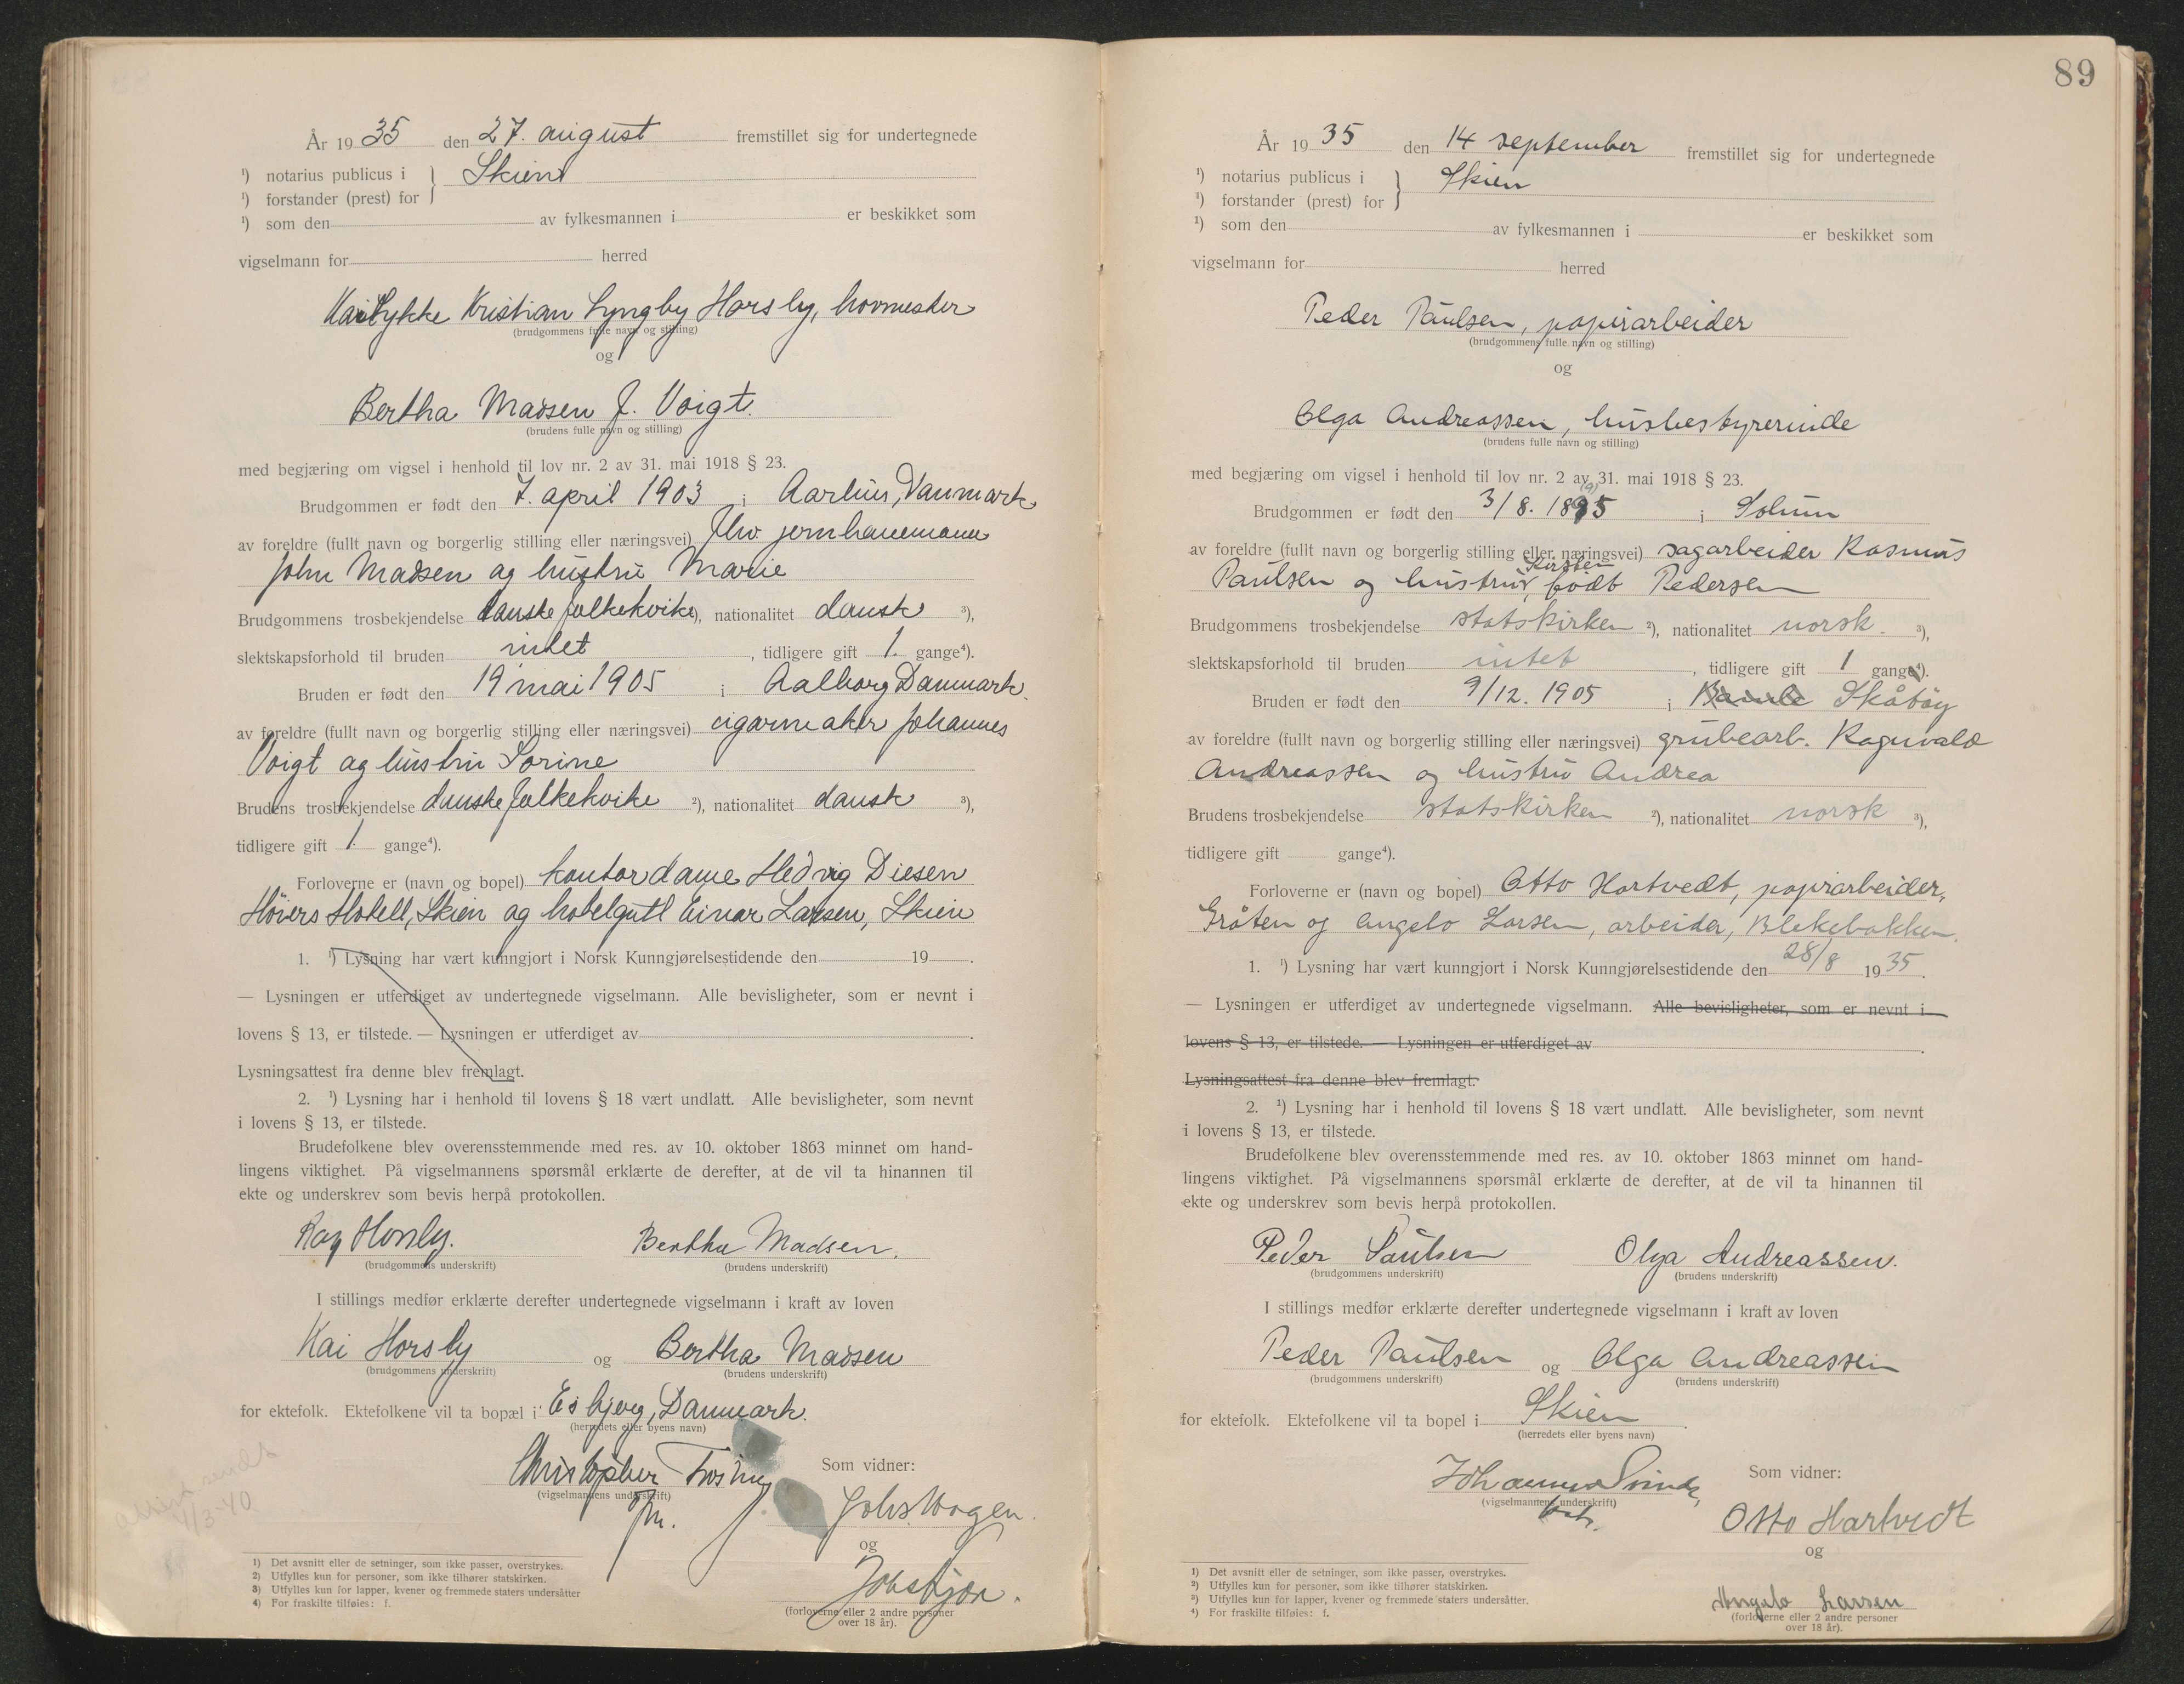 År 1935 den 27. august fremstillet sig for undertegnede
¹) notarius publicus i } Skien
¹) forstander (prest) for
¹) som den av fylkesmannen i er beskikket som
vigselmann for herred
Kristian Lyngby Horsby, hovmester
(brudgommens fulle navn og stilling)
og
Bertha Madsen f. Voigt.
(brudens fulle navn og stilling)
med begjæring om vigsel i henhold til lov nr. 2 av 31. mai 1918 § 23.
Brudgommen er født den 7. april 1903 i Aarhus, Danmark
av foreldre (fullt navn og borgerlig stilling eller næringsvei)
John Madsen og hustru Marie
Brudgommens trosbekjendelse danske folkekirke ²), nationalitet dansk ³),
slektskapsforhold til bruden intet, tidligere gift 1. gange⁴).
Bruden er født den 19 mai 1905 i Aalborg Danmark.
av foreldre (fullt navn og borgerlig stilling eller næringsvei) cigarmaker Johannes
Voigt og hustru Sorine
Brudens trosbekjendelse danske folkekirke ²), nationalitet dansk ³),
tidligere gift 1. gange⁴).
Forloverne er (navn og bopel) kontordame Hedvig Diesen
Høiers Hotell, Skien og hotelgutt Einar Larsen, Skien
1. ¹) Lysning har vært kunngjort i Norsk Kunngjørelsestidende den 19 .
— Lysningen er utferdiget av undertegnede vigselmann. Alle bevisligheter, som er nevnt i
lovens § 13, er tilstede. — Lysningen er utferdiget av .
Lysningsattest fra denne blev fremlagt.
2. ¹) Lysning har i henhold til lovens § 18 vært undlatt. Alle bevisligheter, som nevnt
i lovens § 13, er tilstede.
Brudefolkene blev overensstemmende med res. av 10. oktober 1863 minnet om hand-
lingens viktighet. På vigselmannens spørsmål erklærte de derefter, at de vil ta hinannen til
ekte og underskrev som bevis herpå protokollen.
Kay Horsby. Bertha Madsen.
(brudgommens underskrift) (brudens underskrift)
I stillings medfør erklærte derefter undertegnede vigselmann i kraft av loven
Kai Horsby og Bertha Madsen
(brudgommens underskrift) (brudens underskrift)
for ektefolk. Ektefolkene vil ta bopæl i Esbjerg, Danmark.
(herredets eller byens navn)
Christopher
Som vidner:
(vigselmannens underskrift)
fm.
og
(forloverne eller 2 andre personer
over 18 år).
1) Det avsnitt eller de setninger, som ikke passer, overstrykes.
2) Utfylles kun for personer, som ikke tilhører statskirken.
3) Utfylles kun for lapper, kvener og fremmede staters undersåtter
4) For fraskilte tilføies: f.
89
År 1935 den 14 september fremstillet sig for undertegnede
¹) notarius publicus i } Skien
¹) forstander (prest) for
¹) som den av fylkesmannen i er beskikket som
vigselmann for herred
Peder Paulsen, papirarbeider
(brudgommens fulle navn og stilling)
og
Olga Andreassen, husbestyrerinde
(brudens fulle navn og stilling)
med begjæring om vigsel i henhold til lov nr. 2 av 31. mai 1918 § 23.
(9)
Brudgommen er født den 3/8. 1895 i Solum
av foreldre (fullt navn og borgerlig stilling eller næringsvei) sagarbeider Rasmus
Kirsten
Paulsen og hustru, født Pedersen
Brudgommens trosbekjendelse statskirken ²), nationalitet norsk. ³),
slektskapsforhold til bruden intet, tidligere gift 1 gange⁴).
Bruden er født den 9/12. 1905 i Bamle Skåtøy
av foreldre (fullt navn og borgerlig stilling eller næringsvei) grubearb. Ragnvald
Andreassen og hustru Andrea
Brudens trosbekjendelse statskirken ²), nationalitet norsk ³),
tidligere gift gange⁴).
Forloverne er (navn og bopel) Otto Hartvedt, papirarbeider,
Gråten og Angelo Larsen, arbeider, Blekebakken.
1. ¹) Lysning har vært kunngjort i Norsk Kunngjørelsestidende den 28/8 1935.
— Lysningen er utferdiget av undertegnede vigselmann. Alle bevisligheter, som er nevnt i
lovens § 13, er tilstede. — Lysningen er utferdiget av .
Lysningsattest fra denne blev fremlagt.
2. ¹) Lysning har i henhold til lovens § 18 vært undlatt. Alle bevisligheter, som nevnt
i lovens § 13, er tilstede.
Brudefolkene blev overensstemmende med res. av 10. oktober 1863 minnet om hand-
lingens viktighet. På vigselmannens spørsmål erklærte de derefter, at de vil ta hinannen til
ekte og underskrev som bevis herpå protokollen.
Peder Paulsen Olga Andreassen.
(brudgommens underskrift) (brudens underskrift)
I stillings medfør erklærte derefter undertegnede vigselmann i kraft av loven
Peder Paulsen og Olga Andreassen
(brudgommens underskrift) (brudens underskrift)
for ektefolk. Ektefolkene vil ta bopel i Skien.
(herredets eller byens navn)
Som vidner:
(vigselmannens underskrift)
Otto Hartvedt
og
Angelo Larsen
(forloverne eller 2 andre personer
over 18 år).
1) Det avsnitt eller de setninger, som ikke passer, overstrykes.
2) Utfylles kun for personer, som ikke tilhører statskirken.
3) Utfylles kun for lapper, kvener og fremmede staters undersåtter.
4) For fraskilte tilføies: f.